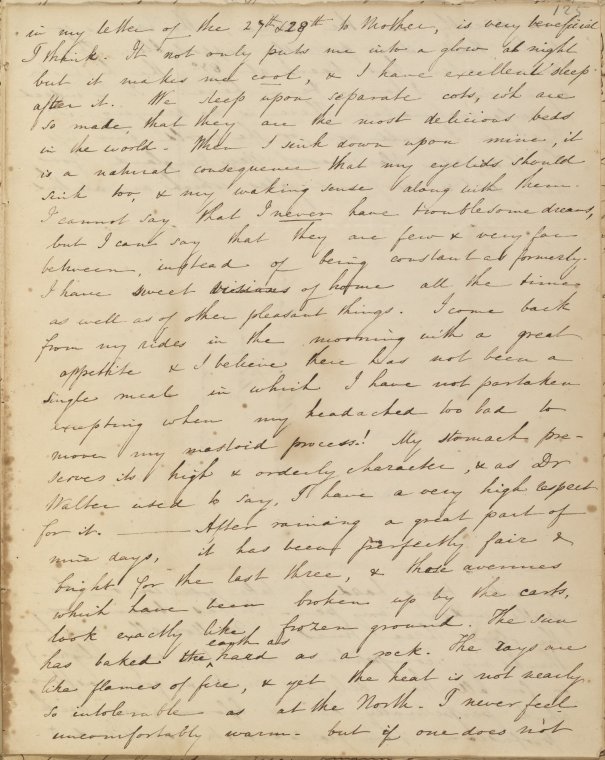 125
in my letter of the 27th & 28th to Mother, is very beneficial
I think. It not only puts me into a glow at night
but it makes me cool, & I have excellent sleep
after it. We sleep upon separate cots, wh are
so made, that they are the most delicious beds
in the world - When I sink down upon mine, it
is a natural consequence that my eyelids should
sink too, & my waking sense along with them.
I cannot say that I never have troublesome dreams,
but I can say that they are few & very far
between, instead of being constant as formerly.
I have sweet visions of home all the time
as well as of other pleasant things. I come back
from my rides in the morning with a great
appetite & I believe there has not been a
single meal in which I have not partaken
excepting when my head ached too bad to
move my mastoid process! My stomach pre-
serves its high & orderly character, & as Dr
Walter used to say, I have a very high respect
for it. ——— After raining a great part of
nine days, it has been perfectly fair &
bright for the last three, & those avenues
which have been broken up by the carts,
look exactly like frozen ground. The sun
has baked the earth as hard as a rock. The rays are
like flames of fire, & yet the heat is not nearly
so intolerable as at the North. I never feel
uncomfortably warm - but if one does n't